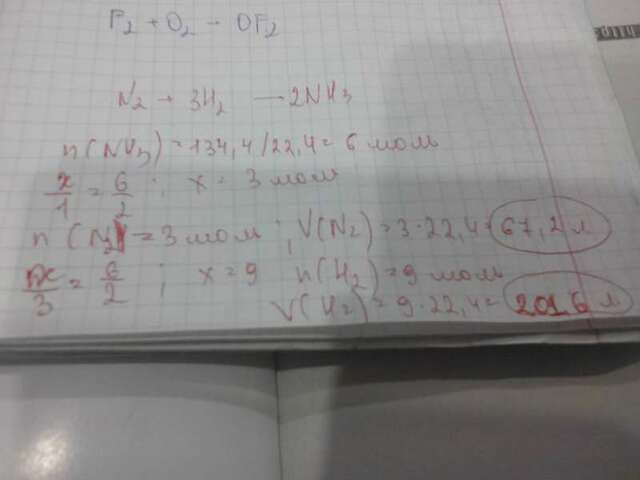 F₂ + O₂ — OF₂
N₂ + 3H₂ → 2NH₃
n(NH₃) = 134,4/22,4 = 6 моль
x/1 = 6/2 ; x = 3 моль
n(N₂) = 3 моль ; V(N₂) = 3·22,4 = 67,2 л
x/3 = 6/2 ; x = 9 n(H₂) = 9 моль
V(H₂) = 9·22,4 = 201,6 л